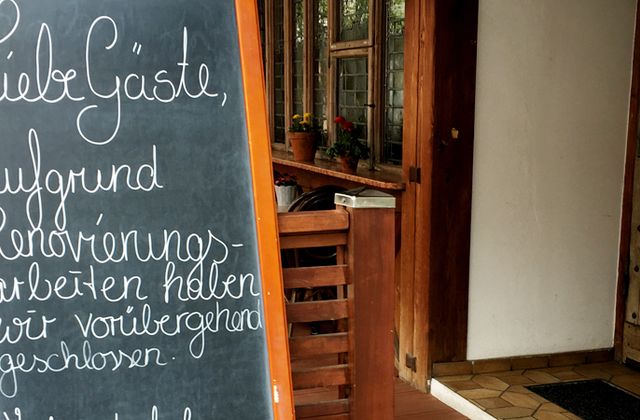 Liebe Gäste,
Aufgrund
Renovierungs-
arbeiten haben
wir vorübergehend
geschlossen.